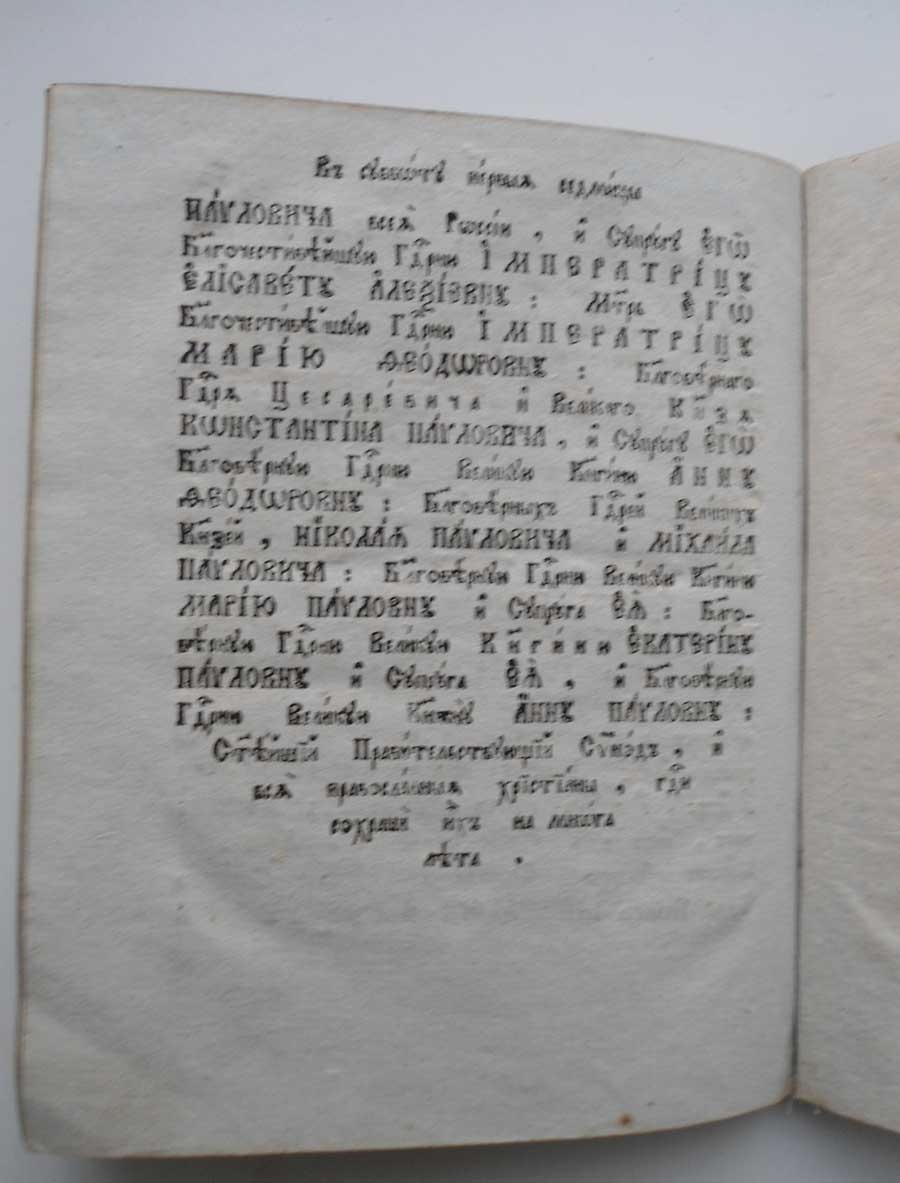 Въ сꙋббѡ́тꙋ пе́рвыѧ седми́цы
ПА́ѴЛОВИЧА всеѧ̀ Рѡссі́и, и҆ Сꙋпрꙋ́гꙋ Е҆ГѠ̀
Бл҃гочести́вѣйшꙋю Гдⷭ҇рню И҆МПЕРАТРІ́ЦꙊ
Е҆ЛІСАВЕ́ТꙊ А҆ЛЕѮІ́ЕВНꙊ: Мт҃рь Е҆ГѠ̀
Бл҃гочести́вѣйшꙋю Гдⷭ҇рню И҆МПЕРАТРІ́ЦꙊ
МАРІ́Ю ѲЕО́ДѠРОВНꙊ: Бл҃говѣ́рнаго
Гдⷭ҇рѧ Цесаре́вича и҆ Вели́каго Кн҃зѧ
КѠНСТАНТІ́НА ПА́ѴЛОВИЧА, и҆ Сꙋпрꙋ́гꙋ Е҆ГѠ̀
Бл҃говѣ́рнꙋю Гдⷭ҇рню Вели́кꙋю Кнг҃и́ню А҆́ННꙊ
ѲЕО́ДѠРОВНꙊ: Бл҃говѣ́рныхъ Гдⷭ҇рей Вели́кихъ
Кн҃зе́й, НІКОЛА́Ѧ ПА́ѴЛОВИЧА и҆ МІХАИ́ЛА
ПА́ѴЛОВИЧА: Бл҃говѣ́рнꙋю Гдⷭ҇рню Вели́кꙋю Кнг҃и́ню
МАРІ́Ю ПА́ѴЛОВНꙊ и҆ Сꙋпрꙋ́га Е҆Ѧ̀: Бл҃го-
вѣ́рнꙋю Гдⷭ҇рню Вели́кꙋю Кнг҃и́ню Е҆КАТЕРІ́НꙊ
ПА́ѴЛОВНꙊ и҆ Сꙋпрꙋ́га Е҆Ѧ̀, и҆ Бл҃говѣ́рнꙋю
Гдⷭ҇рню Вели́кꙋю Кнѧжнꙋ̀ А҆́ННꙊ ПА́ѴЛОВНꙊ:
Ст҃ѣ́йшїй Прави́тельствꙋющїй Сѷно́дъ, и҆
всѧ̑ правосла́вныѧ хрїстїа́ны, гдⷭ҇и
сохранѝ и҆̀хъ на мнѡ́га
лѣ́та.